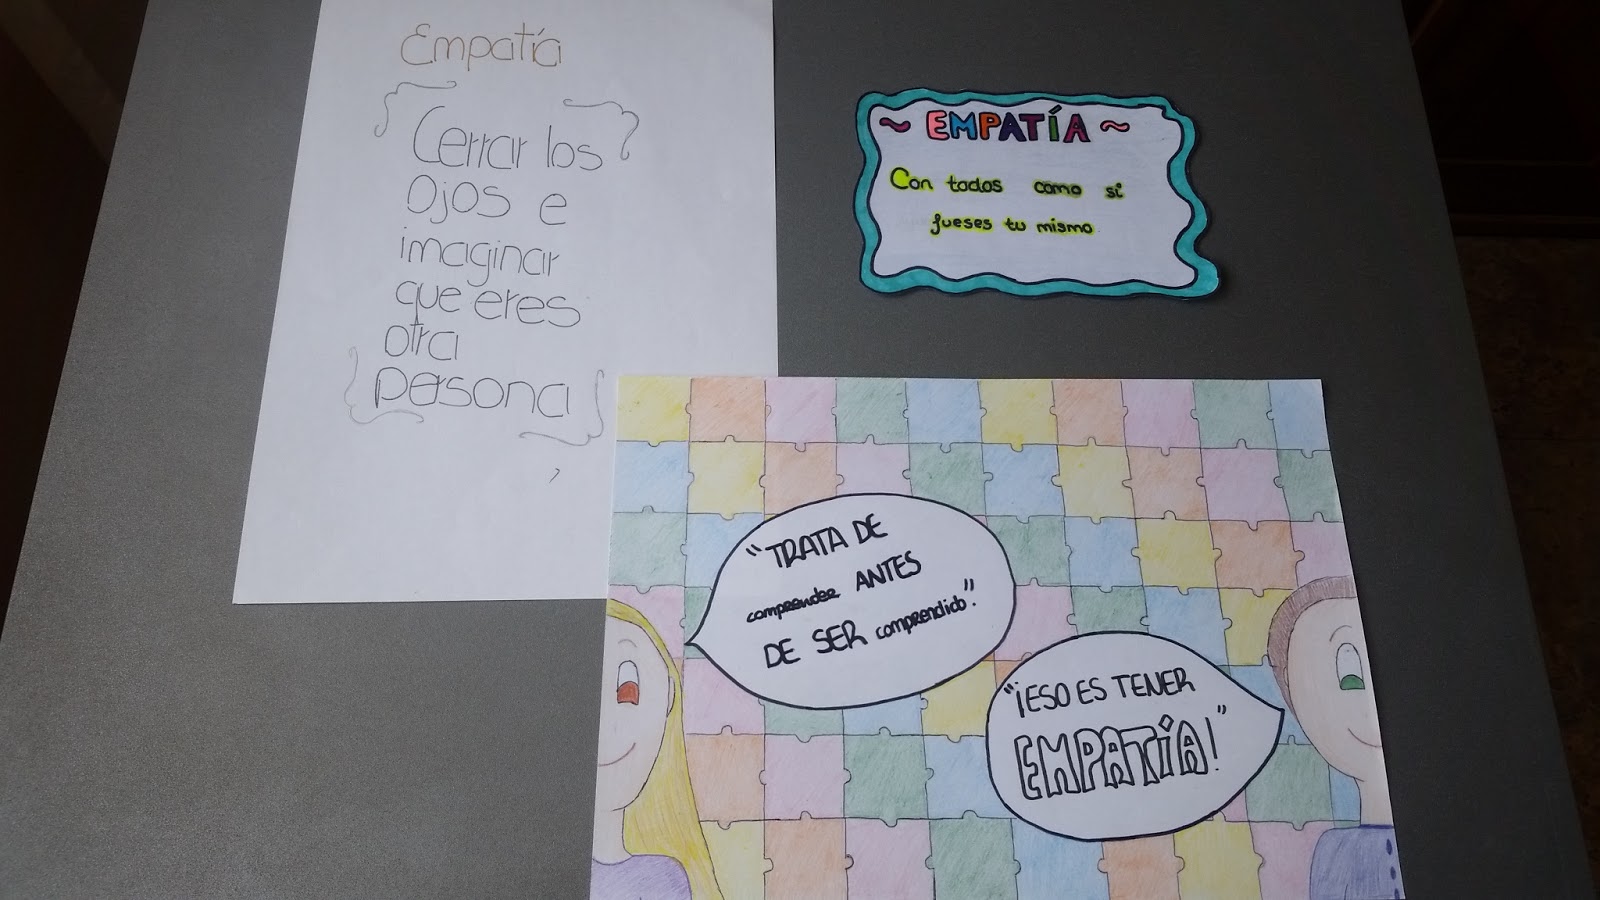 Empatía
Cerrar los
Ojos e
imaginar
que eres
otra
persona
~ EMPATÍA ~
Con todos como si
fueses tu mismo
"TRATA DE
comprender ANTES
DE SER comprendido".
"¡ESO ES TENER
EMPATÍA!"